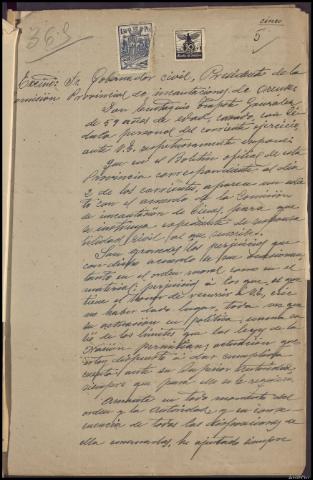 cinco
5
363
Excmo. Sr. Gobernador civil, Presidente de la
Comisión Provincial de incautaciones de
Don Eustasio González
de 59 años de edad, casado, con cé-
dula personal del corriente ejercicio,
ante V.E. respetuosamente expone:
Que en el Boletín oficial de esta
Provincia correspondiente al día
2 de los corrientes, aparece un
con el acuerdo de la Comisión
de incautación de bienes, para que
se instruya expediente de responsa-
bilidad civil al que suscribe.
Son grandes los perjuicios que
con dicho acuerdo se
tanto en el orden moral como en el
material; perjuicios a los que, es que
tiene el honor de recurrir a V.E., cree
no haber dado lugar, toda vez que
su actuación en política, nunca
de los límites que las leyes de la
Nación permitían; actuación que
estoy dispuesto a dar cumplida
cuenta, ante su Superior Autoridad,
siempre que para ello se le requiera.
Amante en todo momento del
orden y la Autoridad y en conse-
cuencia de todas las disposiciones de
ella emanadas, he ajustado siempre